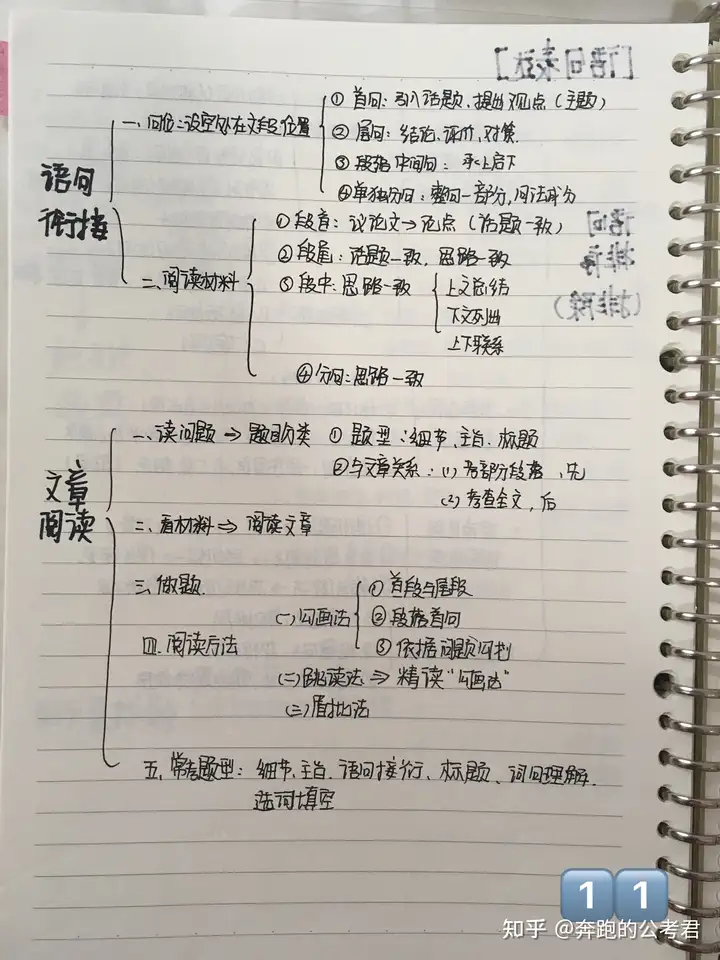 一、问位：设空处在文段位置
① 首句：引入话题、提出观点（主题）
② 尾句：结论、评价、对策
③ 段落中间句：承上启下
④ 单独分句：整句一部分，句法成分
语句
衔接
二、阅读材料
① 段首：议论文→论点（话题一致）
② 段尾：话题一致，思路一致
③ 段中：思路一致
上文总结
下文列出
上下联系
④ 分句：思路一致
文章
阅读
一、读问题 ⇒ 题目分类
① 题型：细节、主旨、标题
② 与文章关系：(1) 考部分段落，先
(2) 考查全文，后
二、看材料 ⇒ 阅读文章
三、做题
四、阅读方法
(一) 勾画法
① 首段与尾段
② 段落首句
③ 依据问题勾划
(二) 跳读法 ⇒ 精读“勾画法”
(三) 眉批法
五、常考题型：细节、主旨、语句接衍、标题、词句理解、
选词填空
【语句表达】
语句
排序
（排除）
11
知乎 @奔跑的公考君